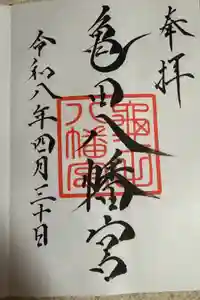 奉拝
亀田八幡宮
令和八年四月三十日